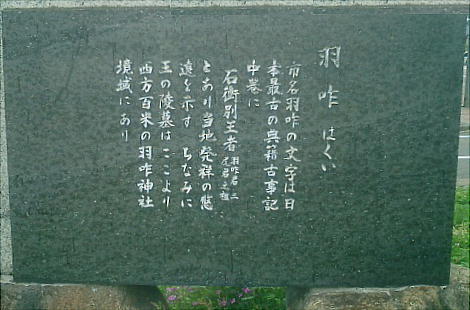 羽咋 はくい
市名羽咋の文字は日
本最古の典籍古事記
中巻に
石衝別王者 羽咋君三
尾君之祖
とあり当地発祥の悠
遠を示す ちなみに
王の陵墓はここより
西方百米の羽咋神社
境域にあり